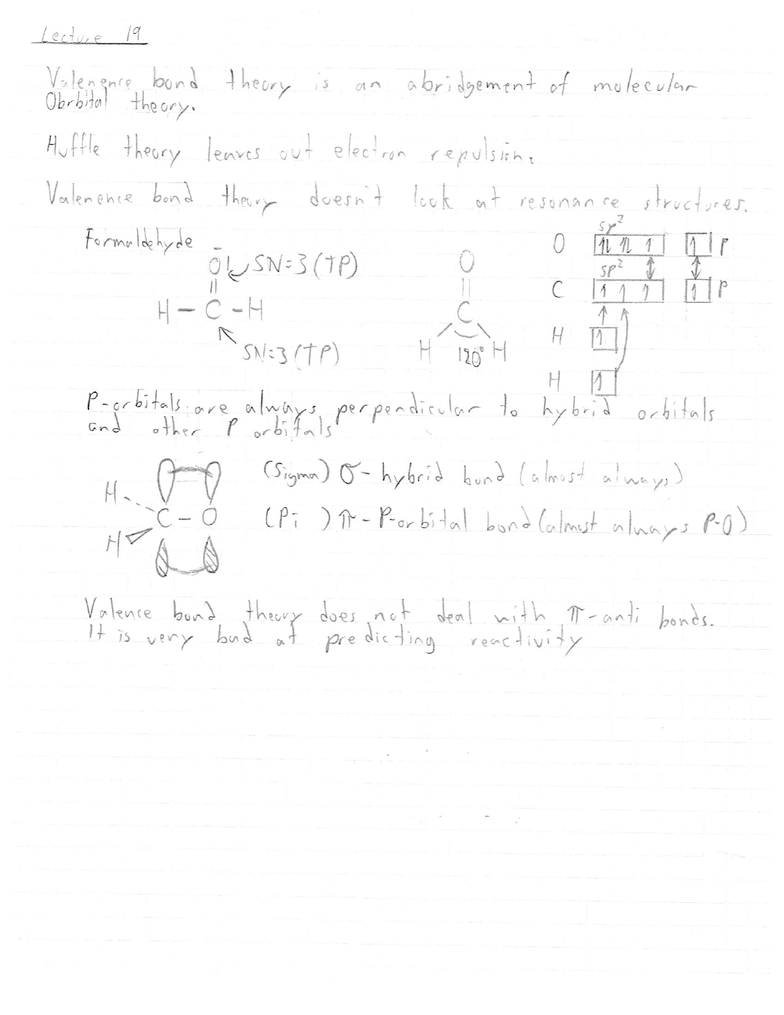 Lecture 19
Valenence bond theory is an abridgement of molecular
Obrbital theory.
Huffle theory leaves out electron repulsion.
Valenence bond theory doesn't look at resonance structures.
Formaldehyde
O SN=3 (TP)
H - C - H
SN=3 (TP)
O
C
H 120° H
sp²
O 1l 1l 1 1 P
sp²
C 1 1 1 1 P
H 1
H 1
P-orbitals are always perpendicular to hybrid orbitals
and other P orbitals
(Sigma) σ - hybrid bond (almost always)
H
C - O
(Pi ) π - P-orbital bond (almost always P-O)
H
Valence bond theory does not deal with π-anti bonds.
It is very bad at predicting reactivity